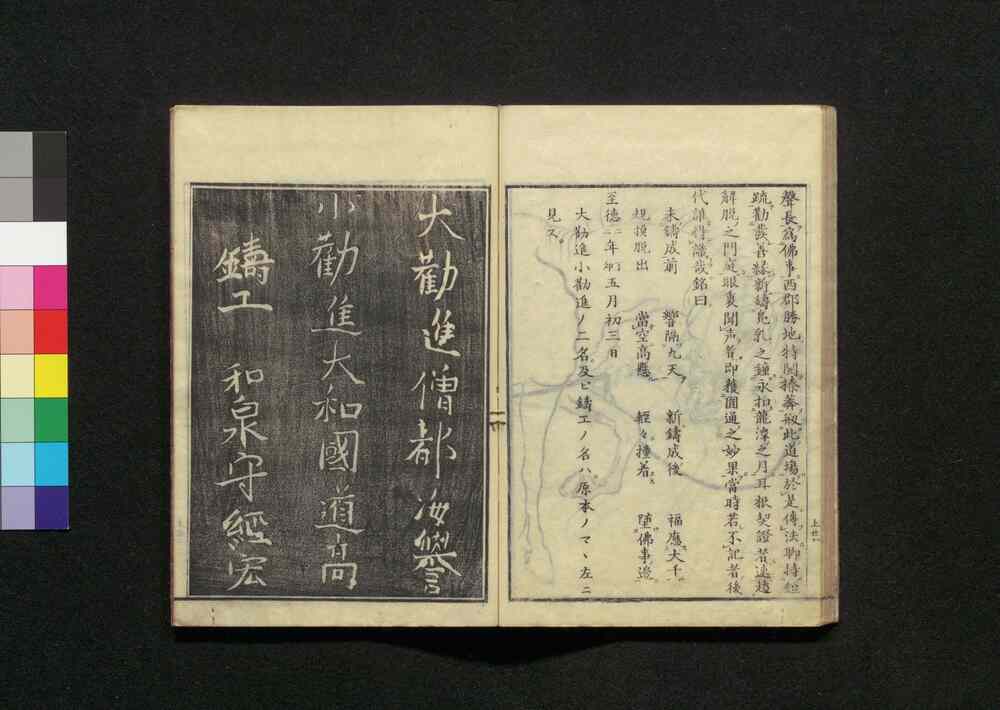 聲長爲佛事西郡勝地特開榛莽叔此道場於是傳法聊持短
疏勸發善緣新鑄鳧乳之鐘永扣龍湫之月耳根契證者速超
解脱之門庭眼裏聞声者即獲圓通之妙果當時若不記者後
代誰得識哉銘曰
未鑄成前 響隔九天 新鑄成後 福應大千
規摸脱出 當空高懸 輕々撞着 佛事邊
至德二年 五月初三日
大勸進小勸進ノ二名及ビ鑄工ノ名ハ原本ノマヽ左ニ
見ス
大勸進僧都汝譽
小勸進大和國道高
鑄工 和泉守經宏